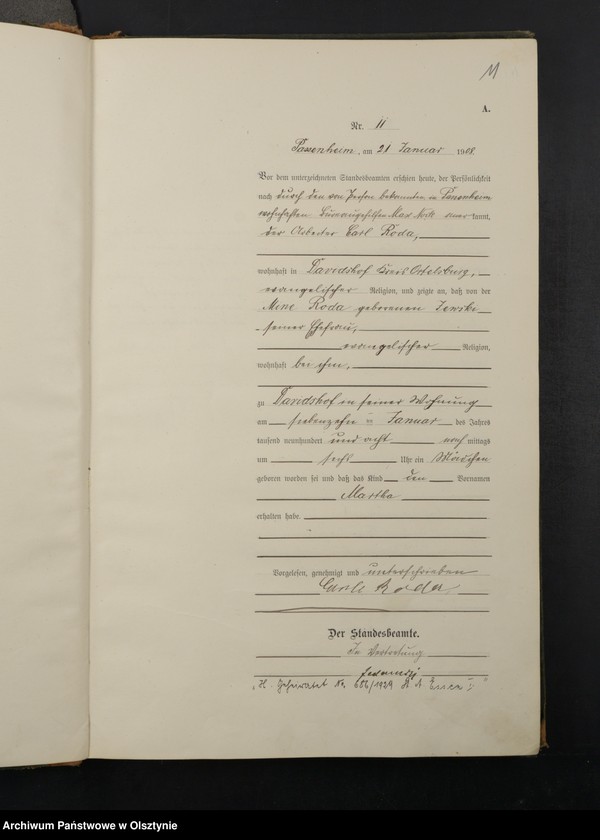 11
A.
Nr. 11
Passenheim, am 21 Januar 1908
Vor dem unterzeichneten Standesbeamten erschien heute, der Persönlichkeit
nach durch den von Person bekannten in Passenheim
wohnhaften Bureaugehilfen Max kannt,
der Arbeiter Carl Roda,
wohnhaft in Davidshof Kreis Ortelsburg,
evangelischer Religion, und zeigte an, daß von der
Mine Roda geborenen
seiner Ehefrau,
evangelischer Religion,
wohnhaft bei ihm,
zu Davidshof in seiner Wohnung
am siebenzehn ten Januar des Jahres
tausend neunhundert und acht nachmittags
um sechs Uhr ein Mädchen
geboren worden sei und daß das Kind den Vornamen
Martha
erhalten habe.
Vorgelesen, genehmigt und unterschrieben
Carl Roda
Der Standesbeamte.
In Vertretung
Geheiratet Nr. 686/1929
Archiwum Państwowe w Olsztynie